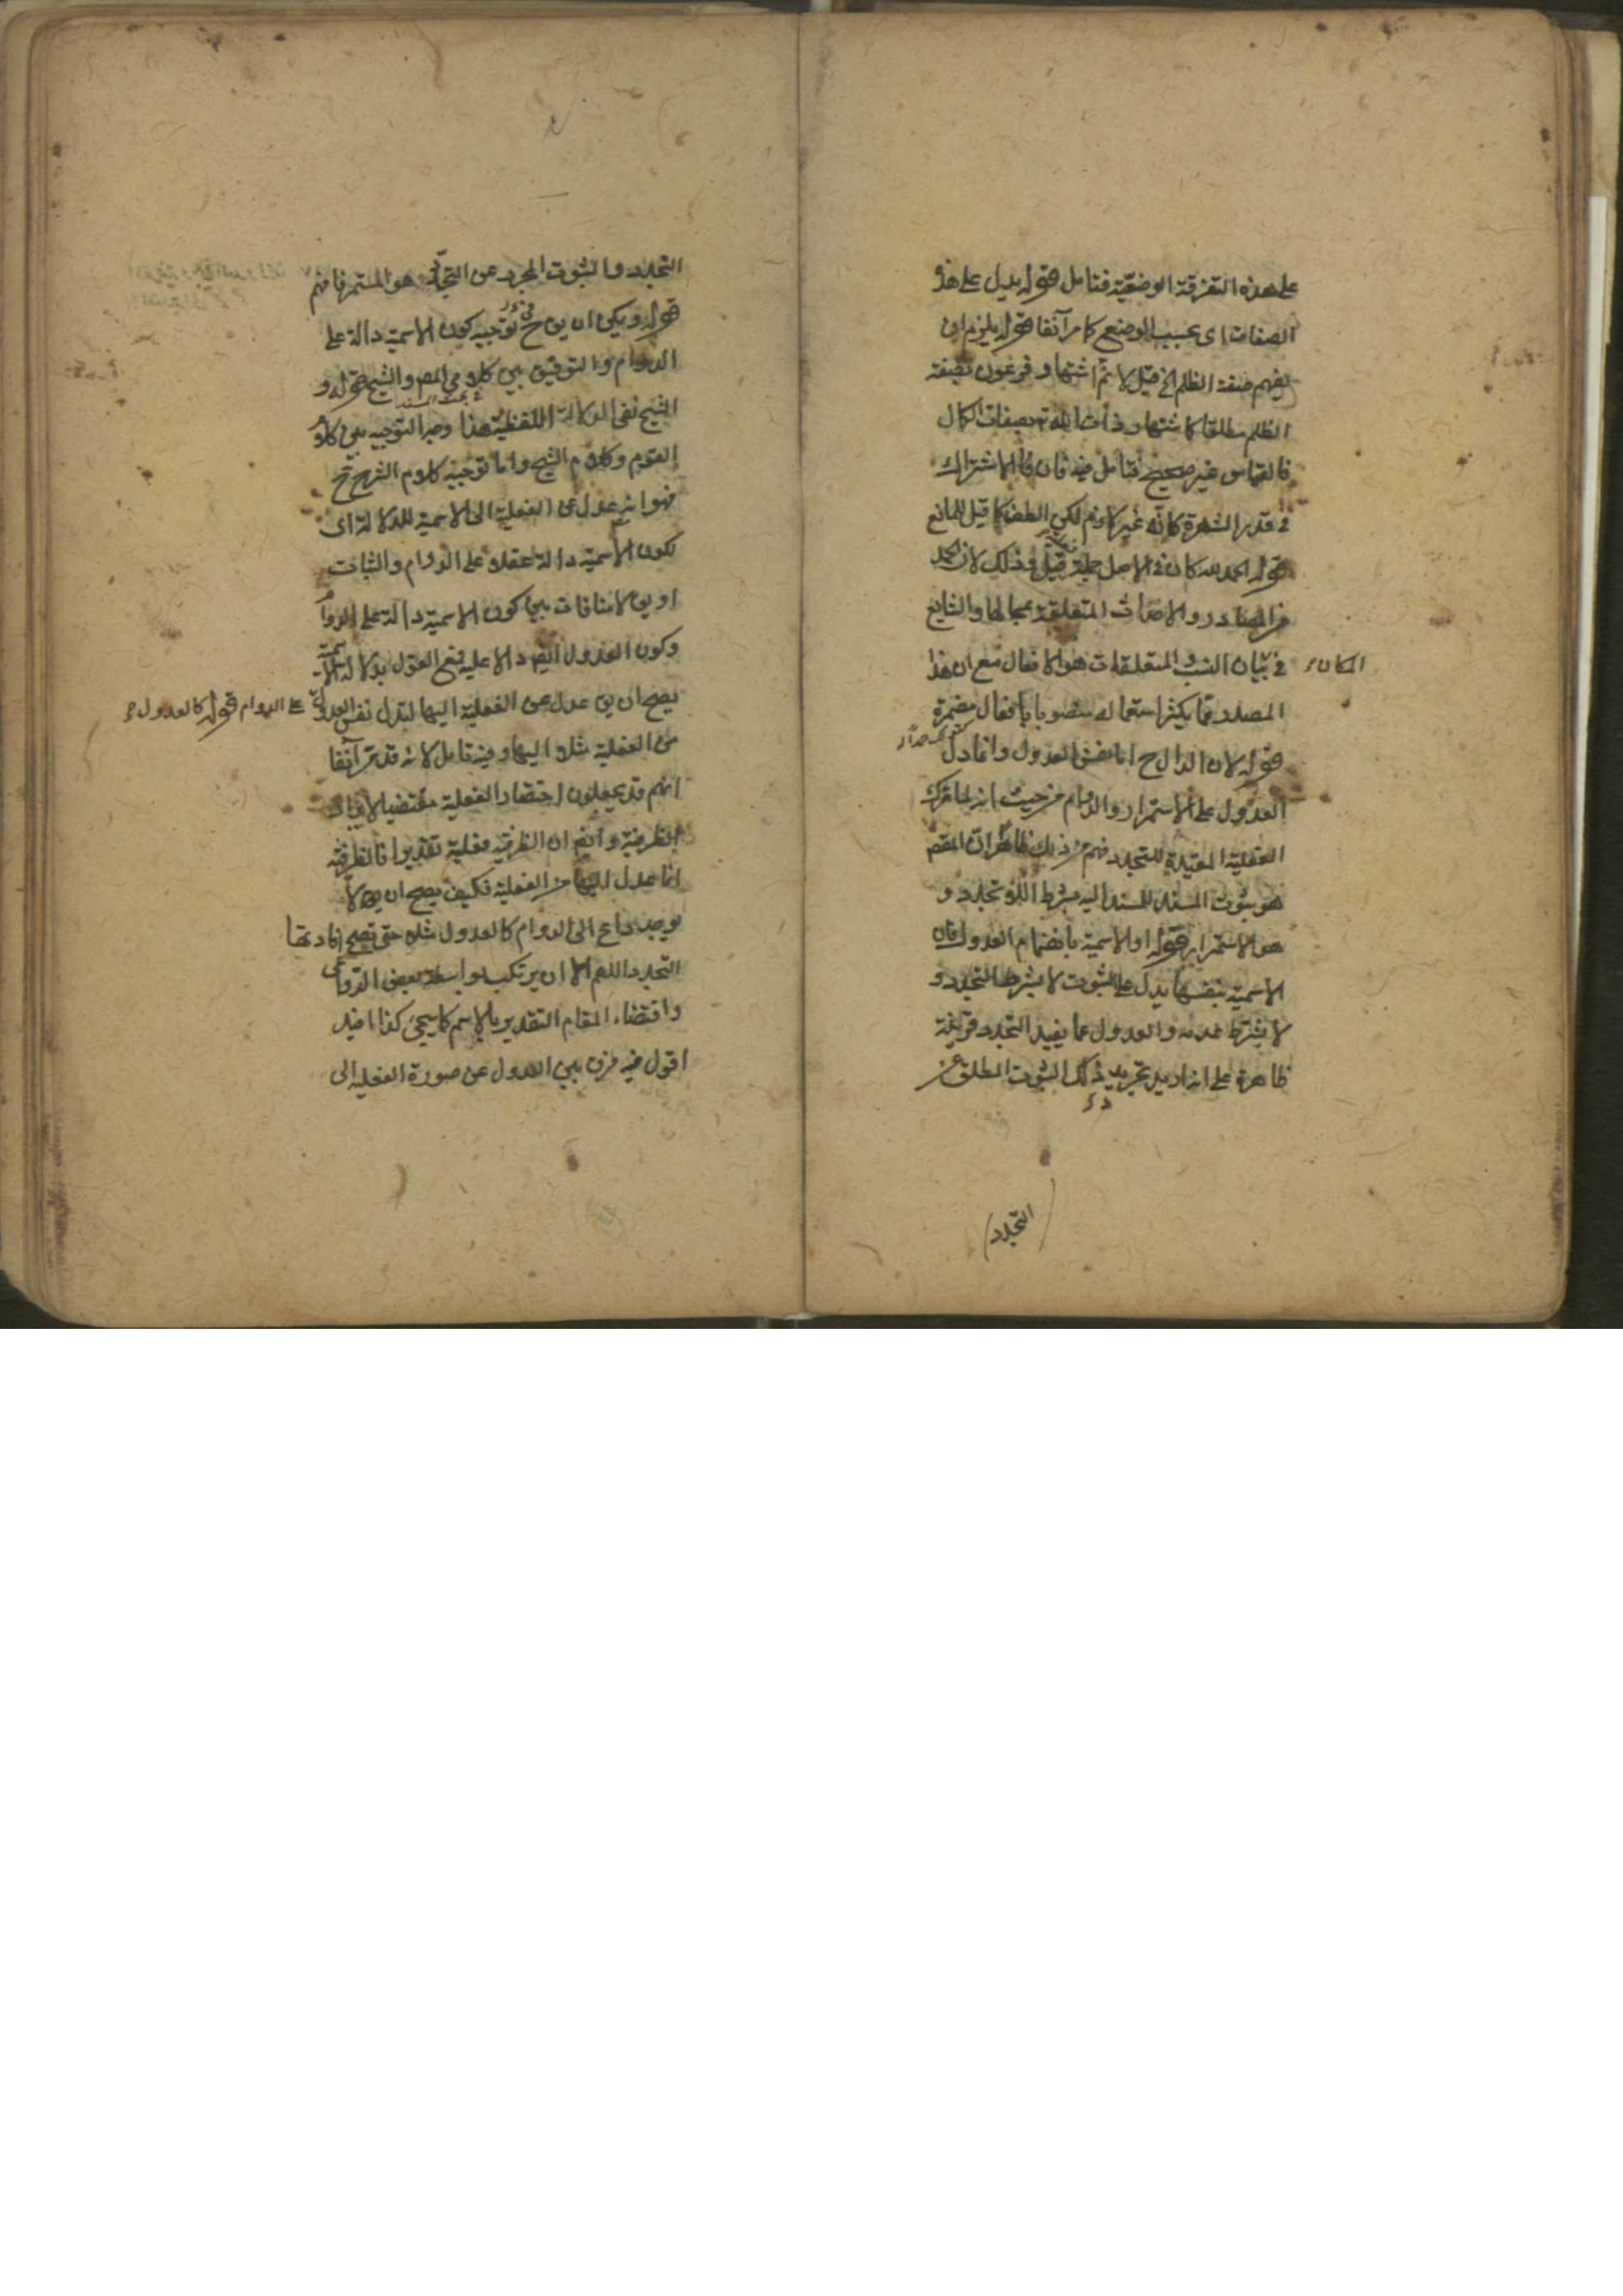 على هذه التفرقة الوضعية فتامل قوله يدل على هذه
الصفات اى بحسب الوضع كما مر آنفا قوله يلزم ان
يفهم صفة الظلم الخ قيل لا يتم اشتهار فرعون بصفة
الظلم مطلقا كاشتهار ذات الله تع بصفات الكمال
فالقياس غير صحيح فتامل فيه فان الاشتراك
فى قدر الشهرة كانه غير لازم لكن كما قيل للمانع
قوله الحمد لله كان فى الاصل جملة قيل وذلك لان الحمد
من المصادر والاصات المتعلقة بمحالها والشايع
فى بيان النسب المتعلقات هو الافعال مع ان هذا
المكان
المصدر مما يكثر استعماله منصوبا بافعال مضمرة
قوله لان الدال ح اما نفس العدول وانما دل
العدول على الاستمرار والدوام من حيث انه لما ترك
الفعلية المفيدة للتجدد فهم من ذلك ظاهرا ان المقص
هو ثبوت المسند للمسند اليه بشرط اللاتجدد و
هو الاستمرار قوله او الاسمية بانضمام العدول فان
الاسمية بنفسها يدل على الثبوت لا بشرط التجدد و
لا بشرط عدمه والعدول عما يفيد التجدد قرينة
ظاهرة على انه اريد تجريد ذلك الثبوت المطلق عن
التجدد
التجدد والثبوت المجرد عن التجدد هو المستمر فافهم
قوله ويمكن ان يق ح فى توجيه كون الاسمية دالة على
الدوام والتوفيق بين كلامى المص والشيخ قوله و
الشيخ نفى الدلالة اللفظية هذا وجه التوجيه بين كلام
القوم وكلام الشيخ واما توجيه كلام الشرح ح
فهو انه عدل عن الفعلية الى الاسمية للدلالة اى
لكون الاسمية دالة عقلا على الدوام والثبات
او يق لا منافات بين كون الاسمية دالة على الدوام
وكون العدول ايضا دالا عليه فمع القول بدلالة الاسمية
يصح ان يق عدل عن الفعلية اليها لتدل نفس العدول
على الدوام قوله كالعدول
عن الفعلية مثلا اليها وفيه تامل لانه قد مر آنفا
انهم قد يجعلون اختصار الفعلية مقتضيا لايراد
الظرفية وايضا ان الظرفية فعلية تقديرا فالظرفية
انما عدل اليها من الفعلية فكيف يصح ان يق لا
يوجد داع الى الدوام كالعدول مثلا حتى تصح افادتها
التجدد اللهم الا ان يرتكب بواسطة بعض الدواعى
واقتضاء المقام التقدير بالاسم كما سيجئ كذا افيد
اقول فيه فرق بين العدول عن صورة الفعلية الى